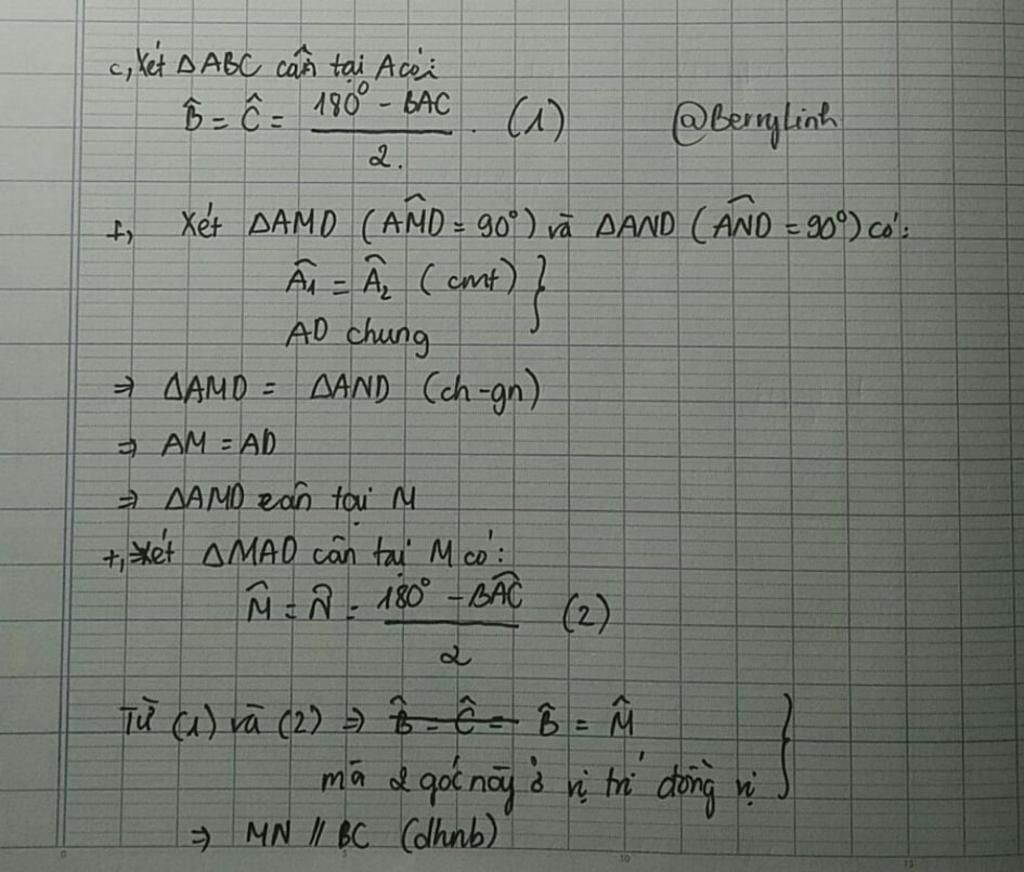 c, Xét ΔABC cân tại A có:
B̂ = Ĉ = (180° - BAC) / 2. (1) @BerryLinh
+, Xét ΔAMD (AMD̂ = 90°) và ΔAND (AND̂ = 90°) có:
Â1 = Â2 (cmt) }
AD chung
⇒ ΔAMD = ΔAND (ch-gn)
⇒ AM = AD
⇒ ΔAMD cân tại M
+, Xét ΔMAD cân tại M có:
M̂ = N̂ = (180° - BAĈ) / 2 (2)
Từ (1) và (2) ⇒ B̂ = Ĉ = B̂ = M̂
mà 2 góc này ở vị trí đồng vị }
⇒ MN // BC (dhnb)